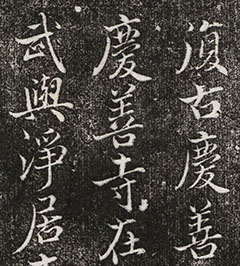 復古慶善
慶善寺在
武興淨居